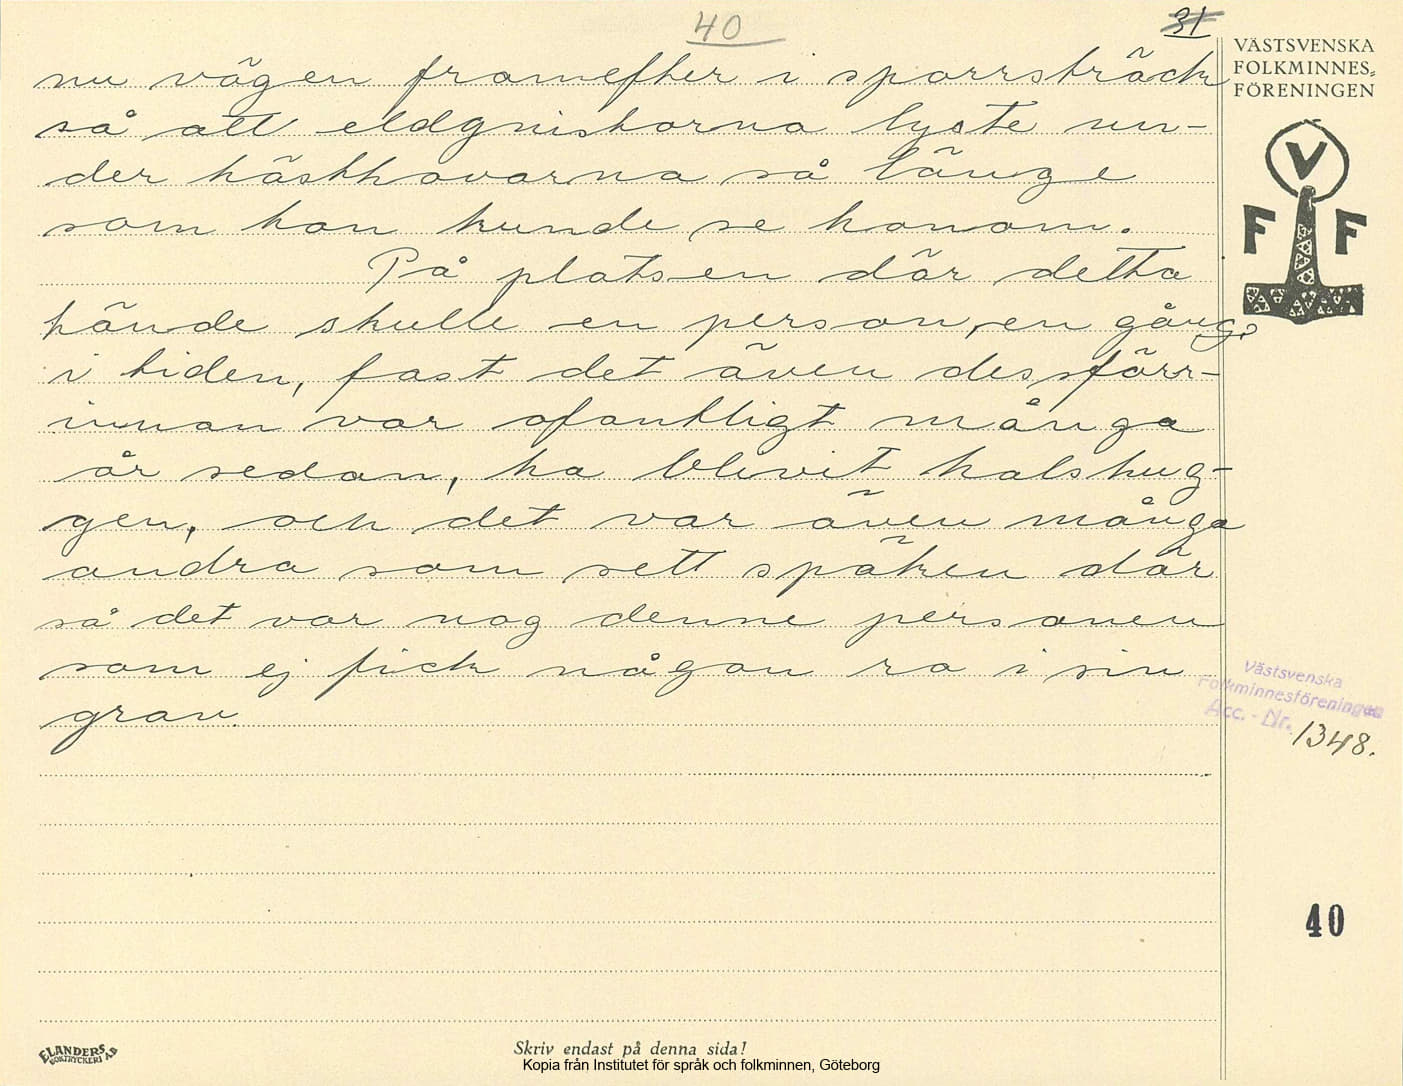 40
31
VÄSTSVENSKA
FOLKMINNES-
FÖRENINGEN
nu vägen framefter i sporrsträck
så att eldgnistorna lyste un-
der hästhovarna så länge
som han kunde se honom.
På platsen där detta
hände skulle en person, en gång
i tiden, fast det även dessförr-
innan var ofantligt många
år sedan, ha blivit halshug-
gen, och det var även många
andra som sett spöken där
så det var nog denne personen
som ej fick någon ro i sin
grav.
V
F F
Västsvenska
Folkminnesföreningen
Acc. - Nr. 1348.
40
ELANDERS
BOKTRYCKERI AB
Skriv endast på denna sida!
Kopia från Institutet för språk och folkminnen, Göteborg